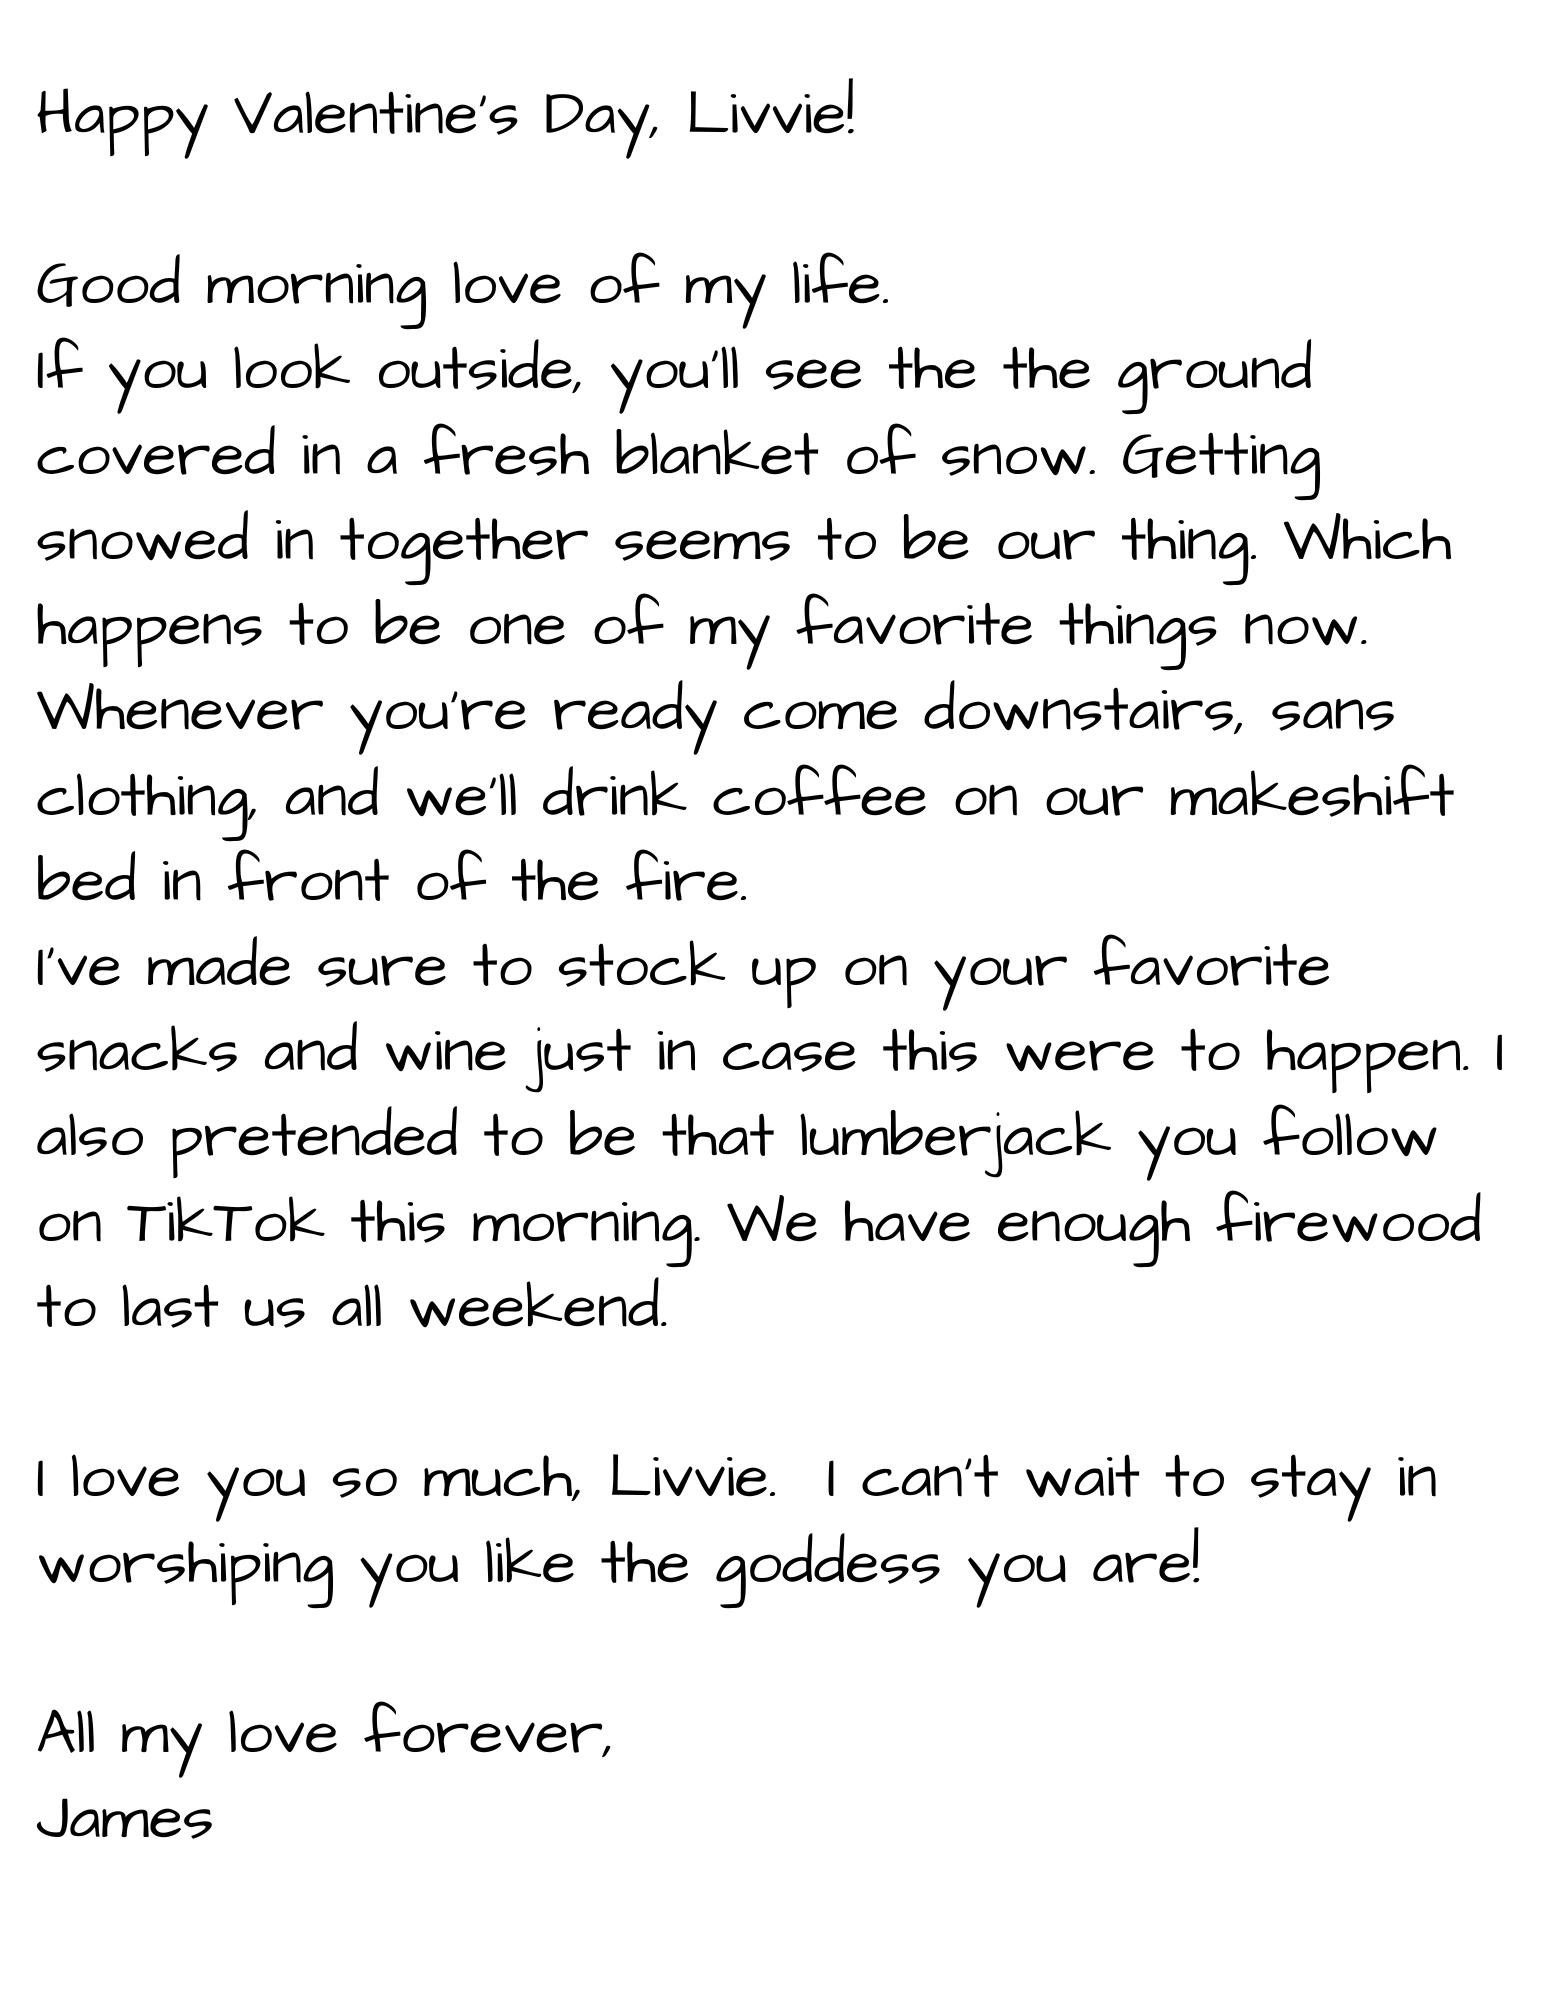 Happy Valentine's Day, Livvie!
Good morning love of my life.
If you look outside, you'll see the the ground
covered in a fresh blanket of snow. Getting
snowed in together seems to be our thing. Which
happens to be one of my favorite things now.
Whenever you're ready come downstairs, sans
clothing, and we'll drink coffee on our makeshift
bed in front of the fire.
I've made sure to stock up on your favorite
snacks and wine just in case this were to happen. I
also pretended to be that lumberjack you follow
on TikTok this morning. We have enough firewood
to last us all weekend.
I love you so much, Livvie.  I can't wait to stay in
worshiping you like the goddess you are!
All my love forever,
James